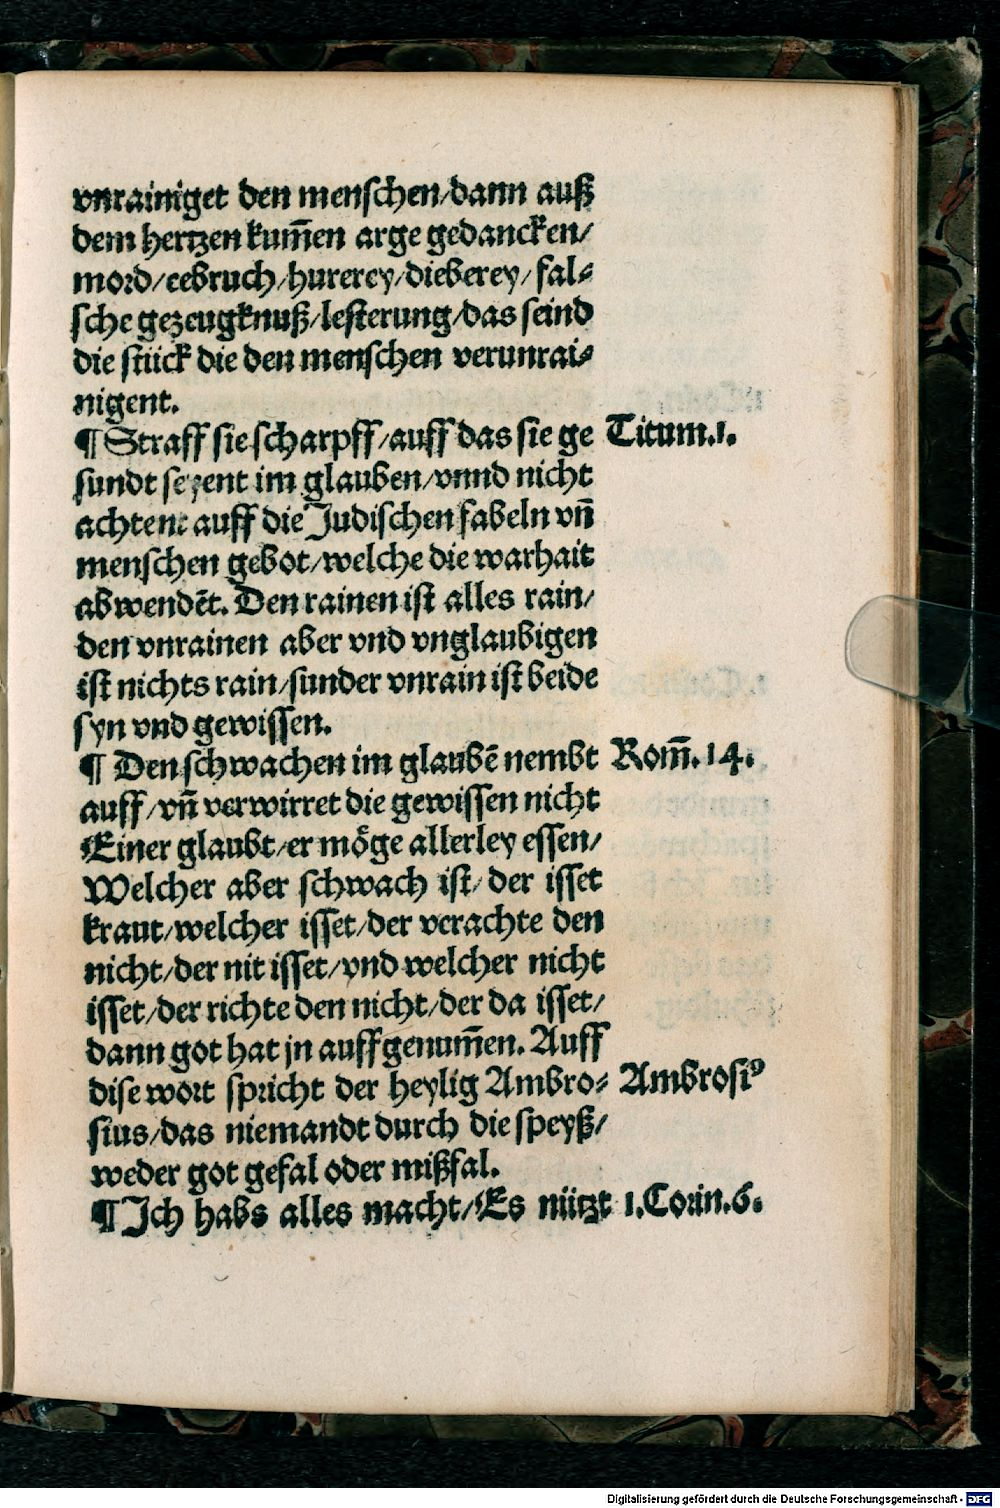 vnrainiget den menschen/dann auß
dem hertzen kum̃en arge gedancken/
mord/eebruch/hurerey/dieberey/fal⸗
sche gezeugknuß/lesterung/das seind
die stück die den menschen verunrai⸗
nigent.
¶ Straff sie scharpff/auff das sie ge Titum.1.
sundt seyent im glauben/vnnd nicht
achtent auff die Judischen fabeln vñ
menschen gebot/welche die warhait
abwendẽt. Den rainen ist alles rain/
den vnrainen aber vnd vnglaubigen
ist nichts rain/sunder vnrain ist beide
syn vnd gewissen.
¶ Den schwachen im glaubẽ nembt Rom̃.14.
auff/vñ verwirret die gewissen nicht
Einer glaubt/er mo̊ge allerley essen/
Welcher aber schwach ist/der isset
kraut/welcher isset/der verachte den
nicht/der nit isset/vnd welcher nicht
isset/der richte den nicht/der da isset/
dann got hat jn auffgenum̃en. Auff
dise wort spricht der heylig Ambro⸗ Ambrosiꝰ
sius/das niemandt durch die speyß/
weder got gefal oder mißfal.
¶ Ich habs alles macht/Es nützt 1.Corin.6.
Digitalisierung gefördert durch die Deutsche Forschungsgemeinschaft - DFG